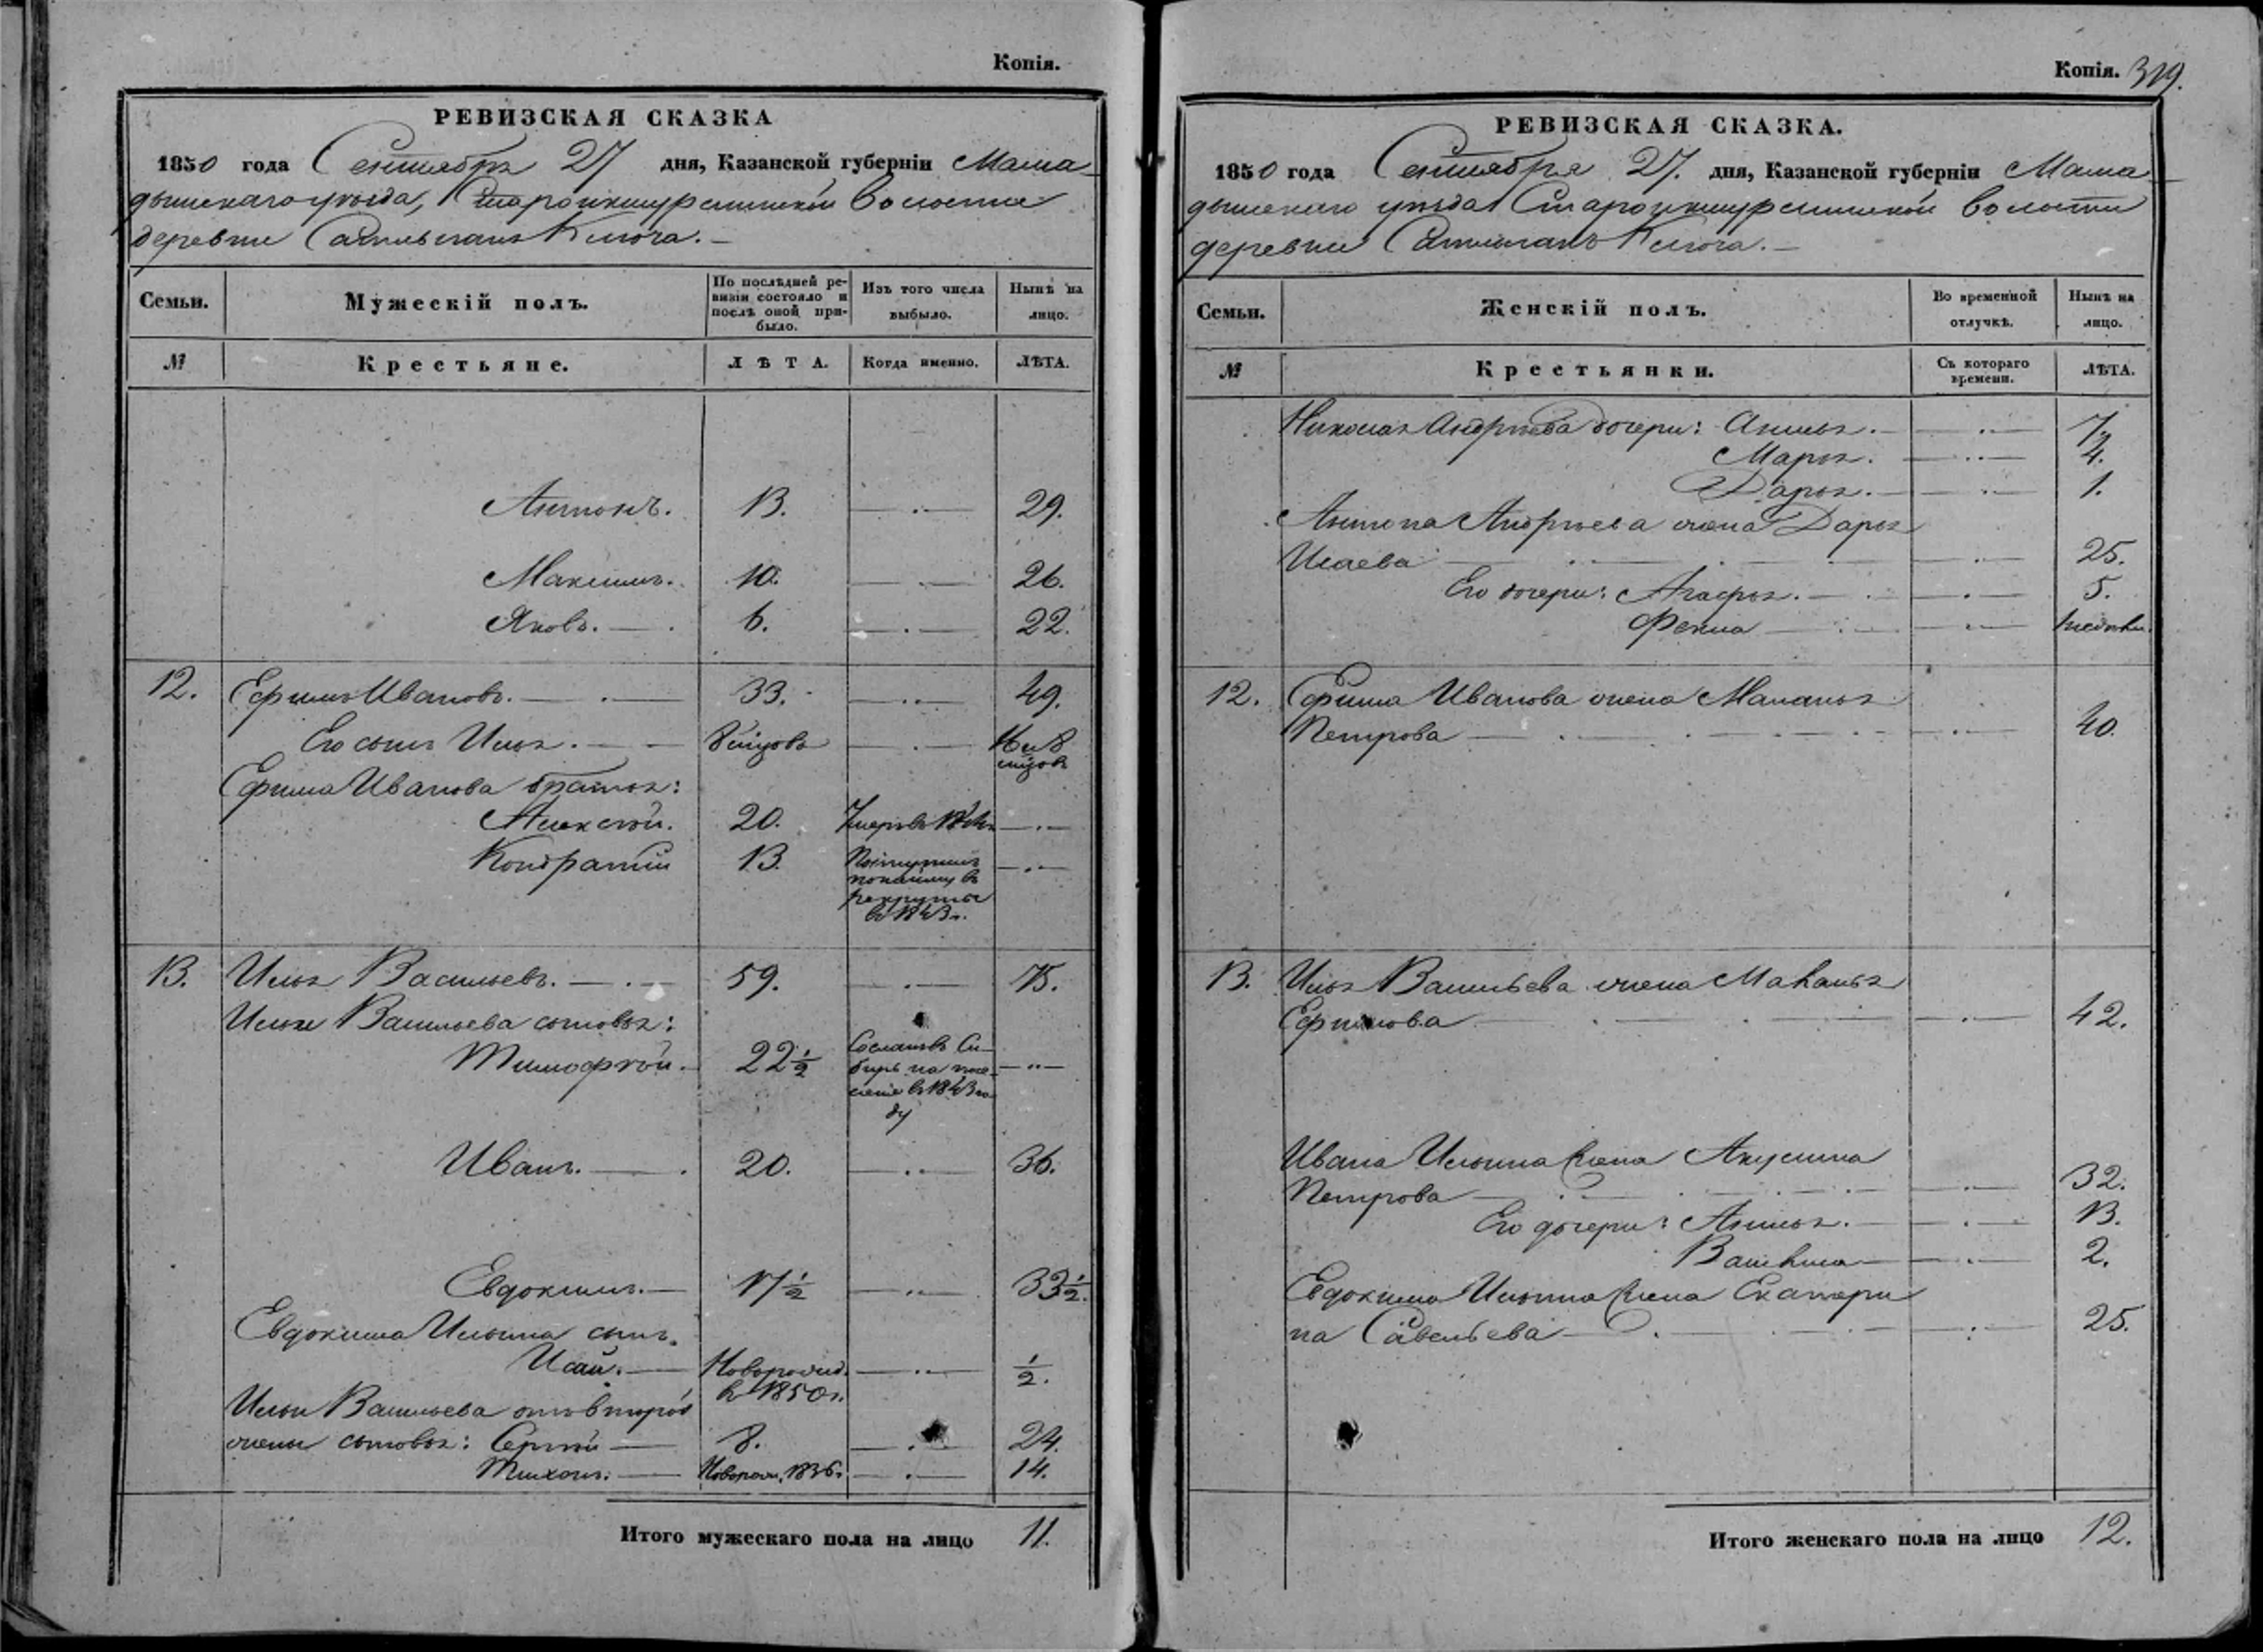 Копія.
РЕВИЗСКАЯ СКАЗКА
1850 года Сентября 27 дня, Казанской губерніи Мама
дышскаго уѣзда, Староикшурминской волости
деревни Ключа.
Семьи. Мужескій полъ. По послѣдней ре- Изъ того числа Нынѣ на
визіи состояло и выбыло. лицо.
послѣ оной при-
было.
№ Крестьяне. ЛѢТА. Когда именно. ЛѢТА.
Антонъ. 13. 29.
Максимъ. 10. 26.
Яковъ. 6. 22.
12. Ефимъ Ивановъ. 33. 49.
Его сынъ Илья. 8 16 и 8
Ефима Иванова братья:
Алексѣй. 20. Умеръ въ
Кондратій 13. Поступилъ
по найму въ
рекруты
въ 1843 г.
13. Илья Васильевъ. 59. 75.
Ильи Васильева сыновья:
Тимофѣй. 22 1/2 Сосланъ въ Си-
бирь на посе-
леніе въ 1843 го-
ду
Иванъ. 20. 36.
Евдокимъ. 17 1/2 33 1/2.
Евдокима Ильина сынъ
Исай. Новорожд. 1/2.
въ 1850 г.
Ильи Васильева отъ второй
жены сыновья: Сергѣй 8. 24.
Тихонъ. Новорож. 1836 г. 14.
Итого мужескаго пола на лицо 11.
Копія. 319.
РЕВИЗСКАЯ СКАЗКА.
1850 года Сентября 27. дня, Казанской губерніи Мама
дышскаго уѣзда Староикшурминской волости
деревни Ключа.
Семьи. Женскій полъ. Во временной Нынѣ на
отлучкѣ. лицо.
№ Крестьянки. Съ котораго ЛѢТА.
времени.
Николая Андрѣева дочери: Анна.
Марья. 4.
Дарья. 1.
Антона Андрѣева жена Дарья
Исаева 25.
Его дочери: Агафья. 5.
Фекла
12. Ефима Иванова жена Маланья
Петрова 40.
13. Ильи Васильева жена Маланья
Ефимова 42.
Ивана Ильина жена Акулина
Петрова 32.
Его дочери: Анна. 13.
2.
Евдокима Ильина жена Екатери
на Савельева 25.
Итого женскаго пола на лицо 12.